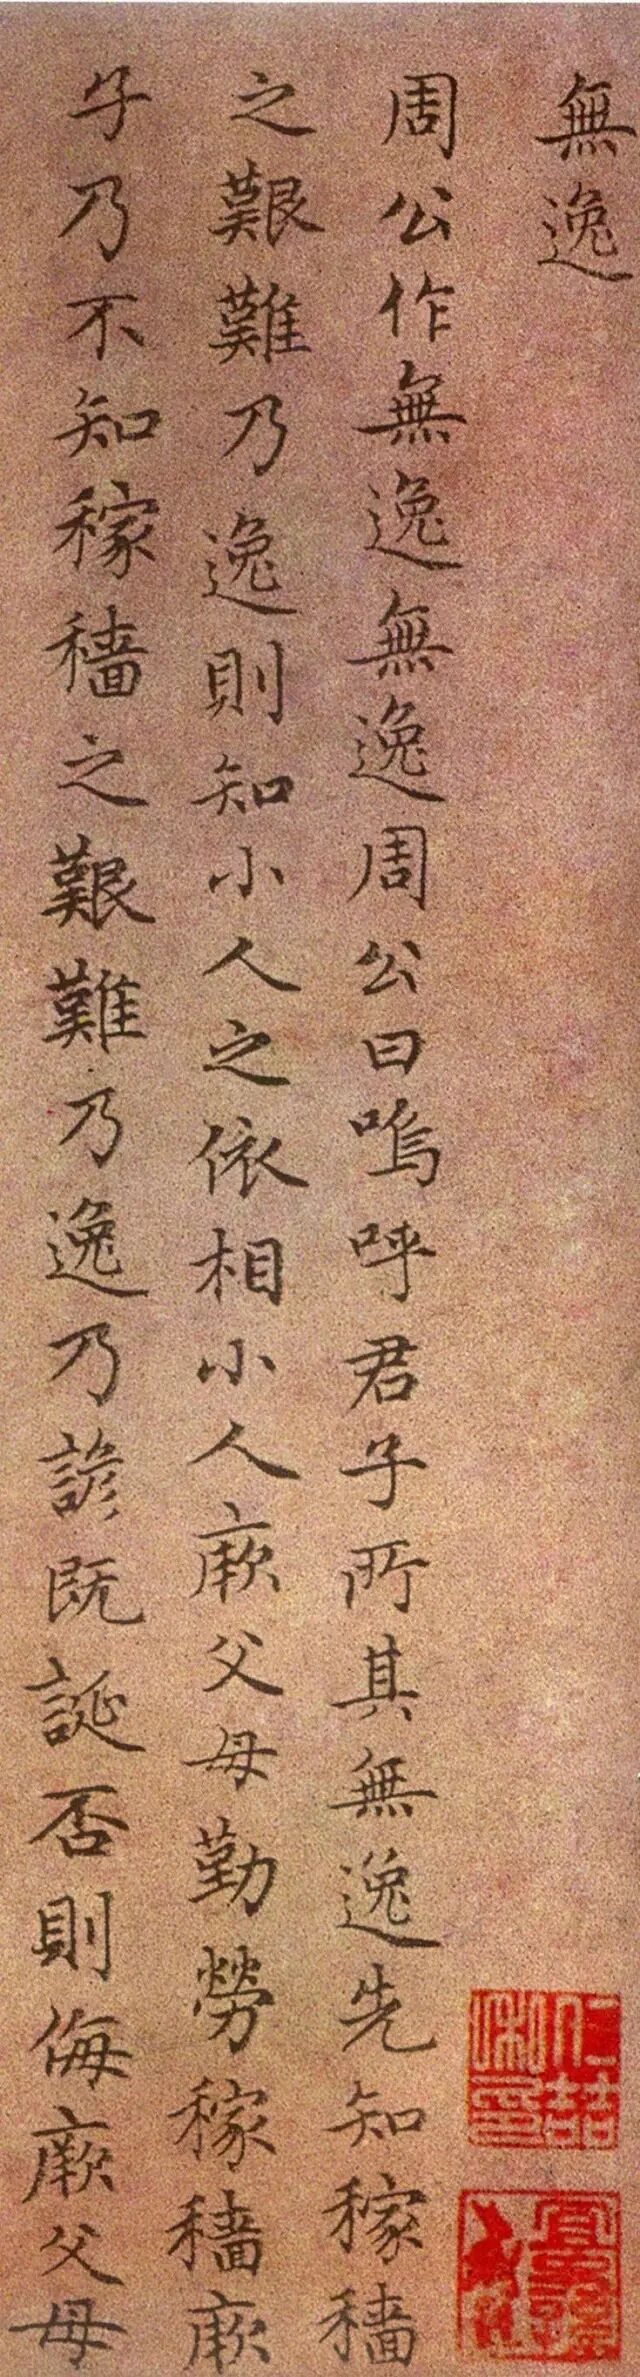 無逸
周公作無逸無逸周公曰嗚呼君子所其無逸先知稼穡
之艱難乃逸則知小人之依相小人厥父母勤勞稼穡厥
子乃不知稼穡之艱難乃逸乃諺既誕否則侮厥父母